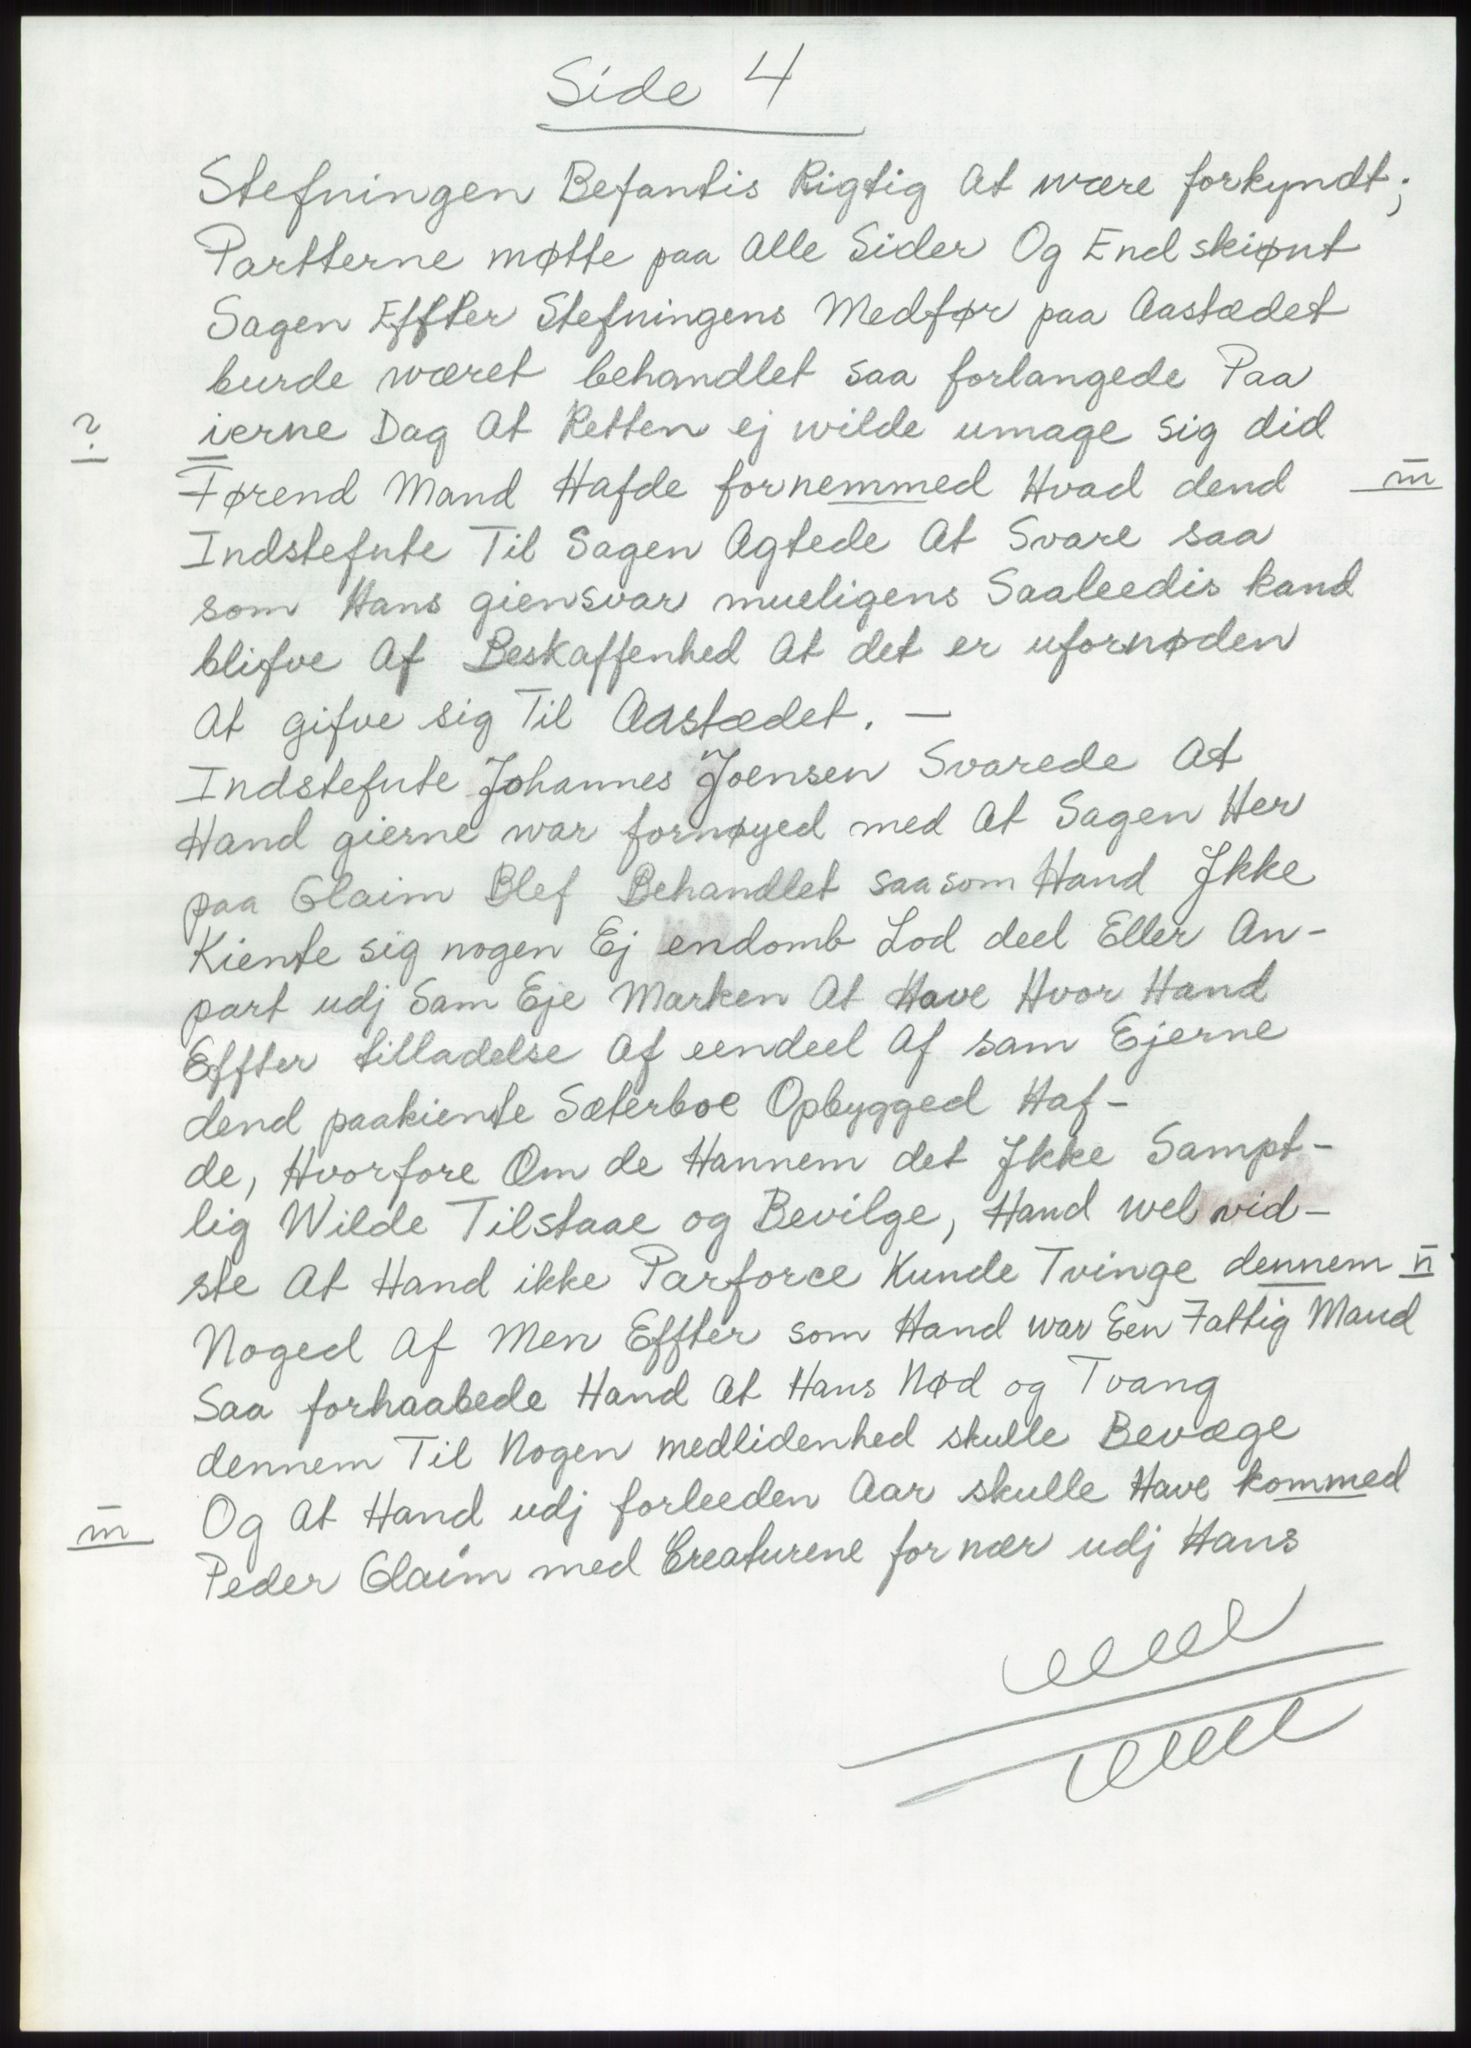 Side 4
Stefningen Befantis Rigtig At være forkyndt;
Partterne møtte paa Alle Sider Og Endskiønt
Sagen Effter Stefningens Medfør paa Aastædet
burde wæret behandlet saa forlangede Paa
? ierne Dag At Retten ej wilde umage sig did
Førend Mand Hafde fornemmed Hvad dend m̄
Indstefnte Til Sagen Agtede At Svare saa
som Hans giensvar mueligens Saaleedis kand
blifve Af Beskaffenhed At det er ufornøden
At gifve sig Til Aastædet. —
Indstefnte Johannes Joensen Svarede At
Hand gierne war fornøyed med At Sagen Her
paa Glaim Blef Behandlet saasom Hand Ikke
Kiente sig nogen Ej endomb Lod deel Eller An-
part udj Sam Eje Marken At Have Hvor Hand
Effter tilladelse Af eendeel Af sam Ejerne
dend paakiente Sæterboe Opbygged Haf-
de, Hvorfore Om de Hannem det Ikke Sampt-
lig Wilde Tilstaae og Bevilge, Hand wel vid-
ste At Hand ikke Parforce Kunde Tvinge dennem n̄
Noged Af Men Effter som Hand war Een Fattig Mand
Saa forhaabede Hand At Hans Nød og Tvang
dennem Til Nogen medlidenhed skulle Bevæge
m̄ Og At Hand udj forleeden Aar skulle Have kommed
Peder Glaim med Creaturene for nær udj Hans